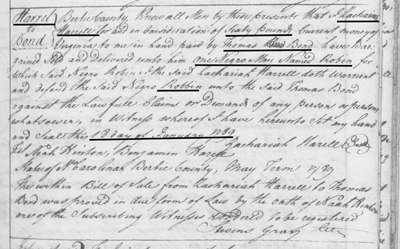 Harrell to Bond
Bertie County. Know all Men by these presents that I Zachariah
Harrell for and in consideration of Sixty pounds Current money of
Virginia to me in hand paid by Thomas Bond have Bar-
gained Sold and delivered unto him one Negro Man Named Robin for
Which Said Negro Robin I the Said Zachariah Harrell doth Warrant
and defend the Said Negro Robbin unto the Said Thomas Bond
against the Lawfull Claims or Demands of any person or persons
whatsoever, in Witness whereof I have hereunto Set my hand
and Seal this 13 day of January 1789
Zachariah Harrell Seal
Noah Hinton, Benjamin
State of No Carolina Bertie County, May Term 1789
The within Bill of Sale from Zachariah Harrell to Thomas
Bond was proved in due form of Law by the oath of Noah Hinton
one of the Subscribing Witnesses & ordered to be registered
Stevens Gray